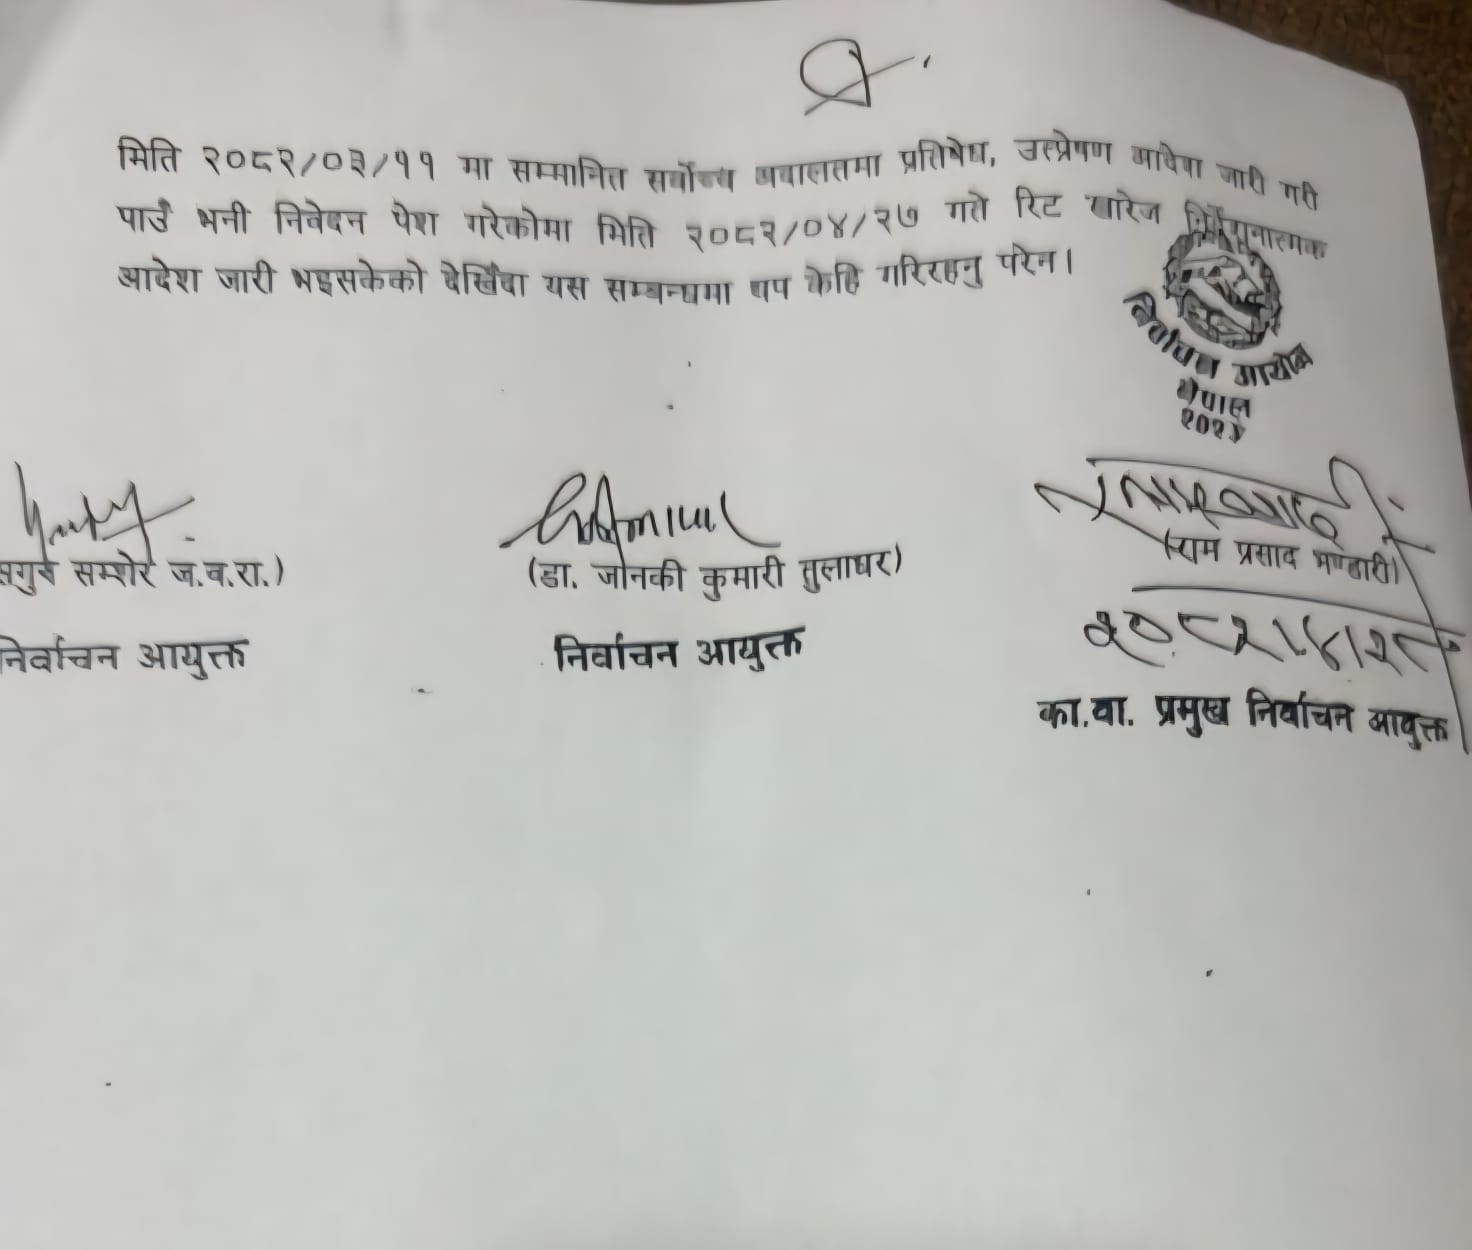 मिति २०८२/०३/११ मा सम्मानित सर्वोच्च अदालतमा प्रतिषेध, उत्प्रेषण आदेश जारी गरी
पाउँ भनी निवेदन पेश गरेकोमा मिति २०८२/०४/२७ गते रिट खारेज
आदेश जारी भइसकेको देखिँदा यस सम्बन्धमा थप केहि गरिरहनु परेन।
निर्वाचन आयोग
नेपाल
सम्शेर ज.ब.रा.)
(डा. जानकी कुमारी तुलाधर)
(राम प्रसाद भण्डारी)
२०८२/४/२८
निर्वाचन आयुक्त
निर्वाचन आयुक्त
का.वा. प्रमुख निर्वाचन आयुक्त